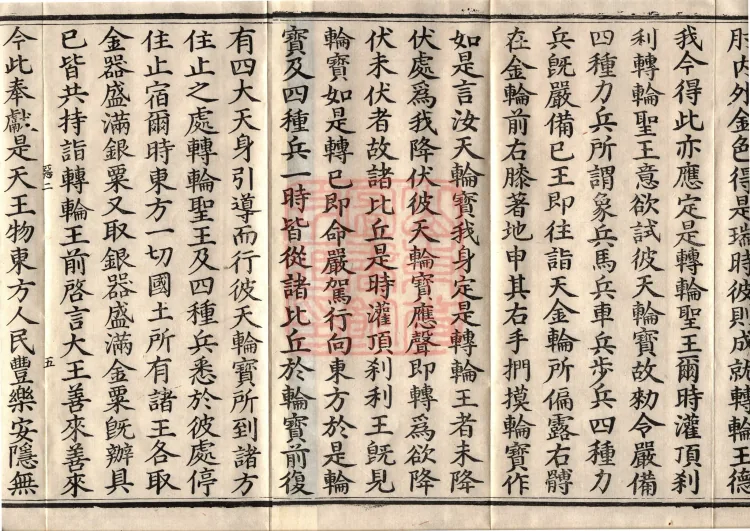 肘内外金色得是瑞時彼則成就轉輪王德
我今得此亦應定是轉輪聖王爾時灌頂刹
利轉輪聖王意欲試彼天輪寶故勑令嚴備
四種力兵所謂象兵馬兵車兵步兵四種力
兵旣嚴備已王即往詣天金輪所偏露右髆
在金輪前右膝著地申其右手捫摸輪寶作
如是言汝天輪寶我身定是轉輪王者未降
伏處爲我降伏彼天輪寶應聲即轉爲欲降
伏未伏者故諸比丘是時灌頂刹利王旣見
輪寶如是轉已即命嚴駕行向東方於是輪
寶及四種兵一時皆從諸比丘於輪寶前復
有四大天身引導而行彼天輪寶所到諸方
住止之處轉輪聖王及四種兵悉於彼處停
住止宿爾時東方一切國土所有諸王各取
金器盛滿銀粟又取銀器盛滿金粟旣辦具
已皆共持詣轉輪王前啓言大王善來善來
五
今此奉獻是天王物東方人民豐樂安隱無